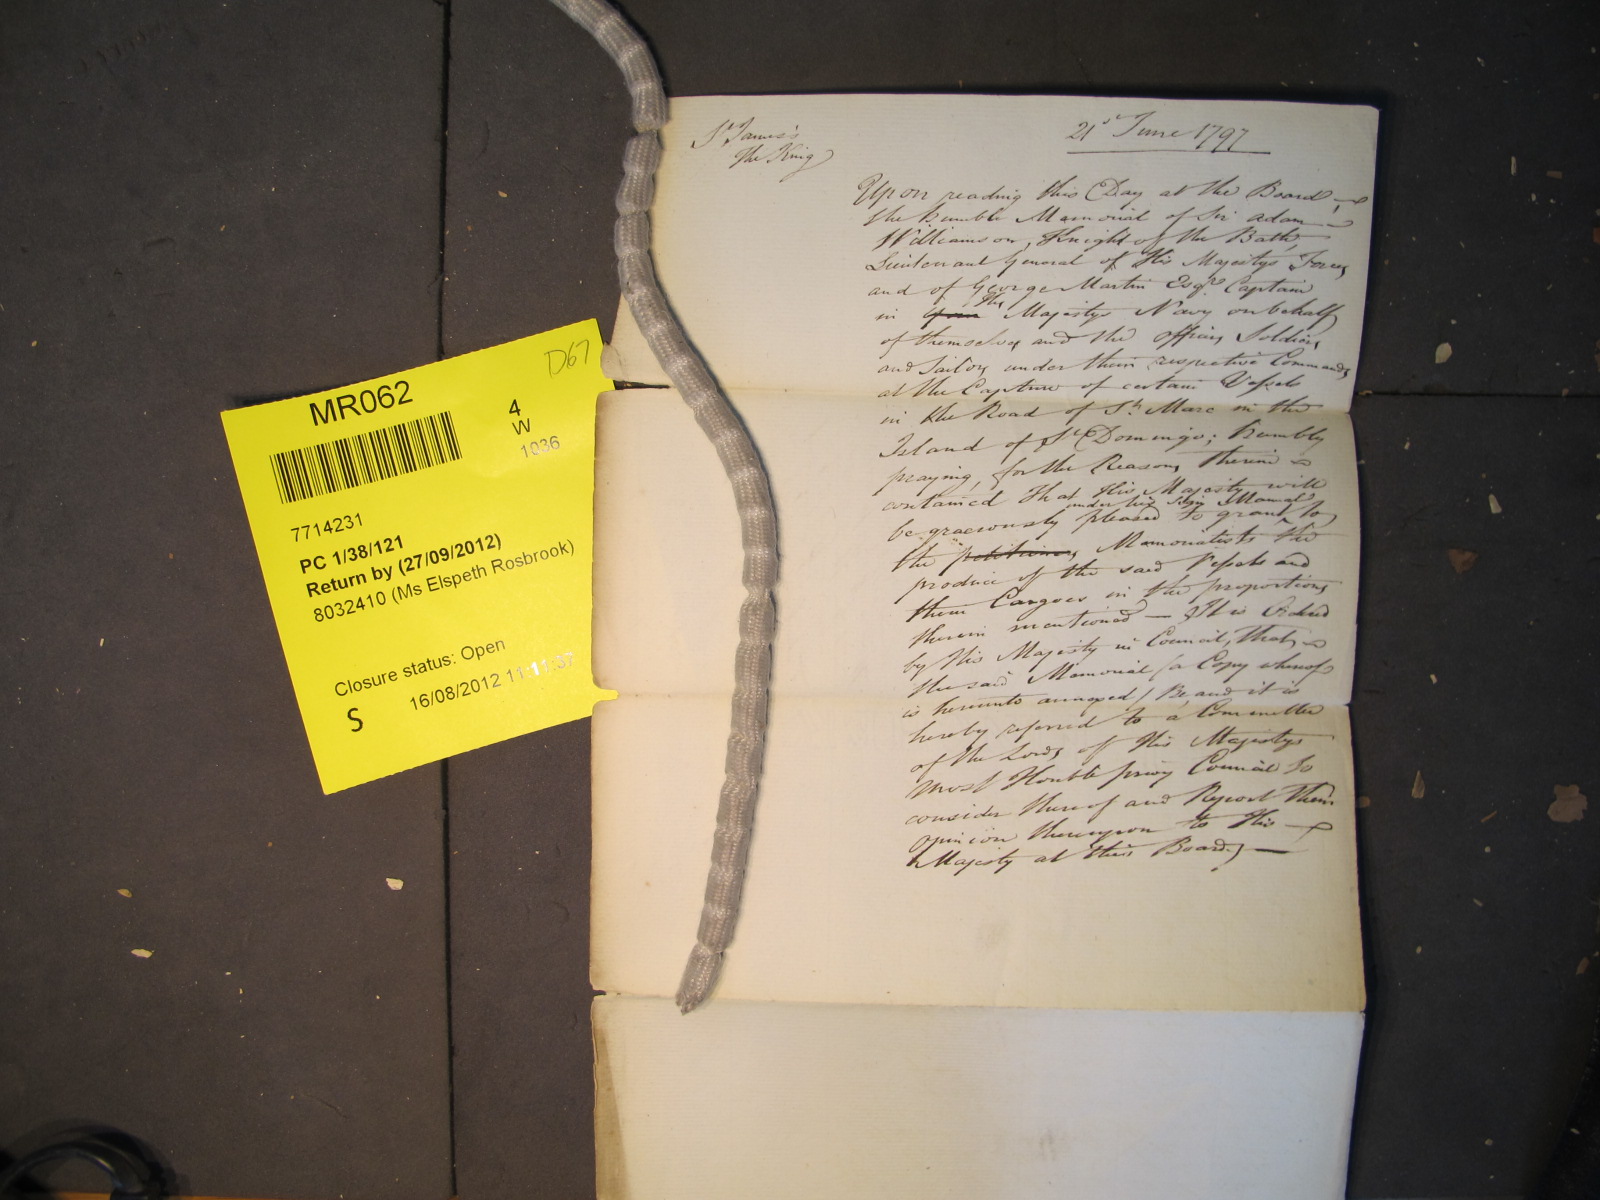 D67
MR062
4
W
1036
7714231
PC 1/38/121
Return by (27/09/2012)
8032410 (Ms Elspeth Rosbrook)
Closure status: Open
16/08/2012 11:11:37
S
St James's
The King
21st June 1797
Upon reading this Day at the Board
the humble Memorial of Sir Adam
Williamson, Knight of the Bath,
Lieutenant General of His Majestys Forces
and of George Martin Esqr. Captain
in His Majestys Navy on behalf
of themselves and the Officers, Soldiers,
and Sailors under their respective Commands
at the Capture of certain Vessels
in the Road of St. Marc in the
Island of St. Domingo; humbly
praying, for the Reasons therein
contained that His Majesty will
under his Sign Manual
be graciously pleased to grant to
the petitioners Memorialists the
produce of the said Vessels and
their Cargoes in the proportions
therein mentioned — It is Ordered
by His Majesty in Council, that
the said Memorial (a Copy whereof
is hereunto annexed) Be, and it is
hereby referred to a Committee
of the Lords of His Majestys
Most Honble privy Council to
consider thereof and Report their
opinion thereupon to His
Majesty at this Board —